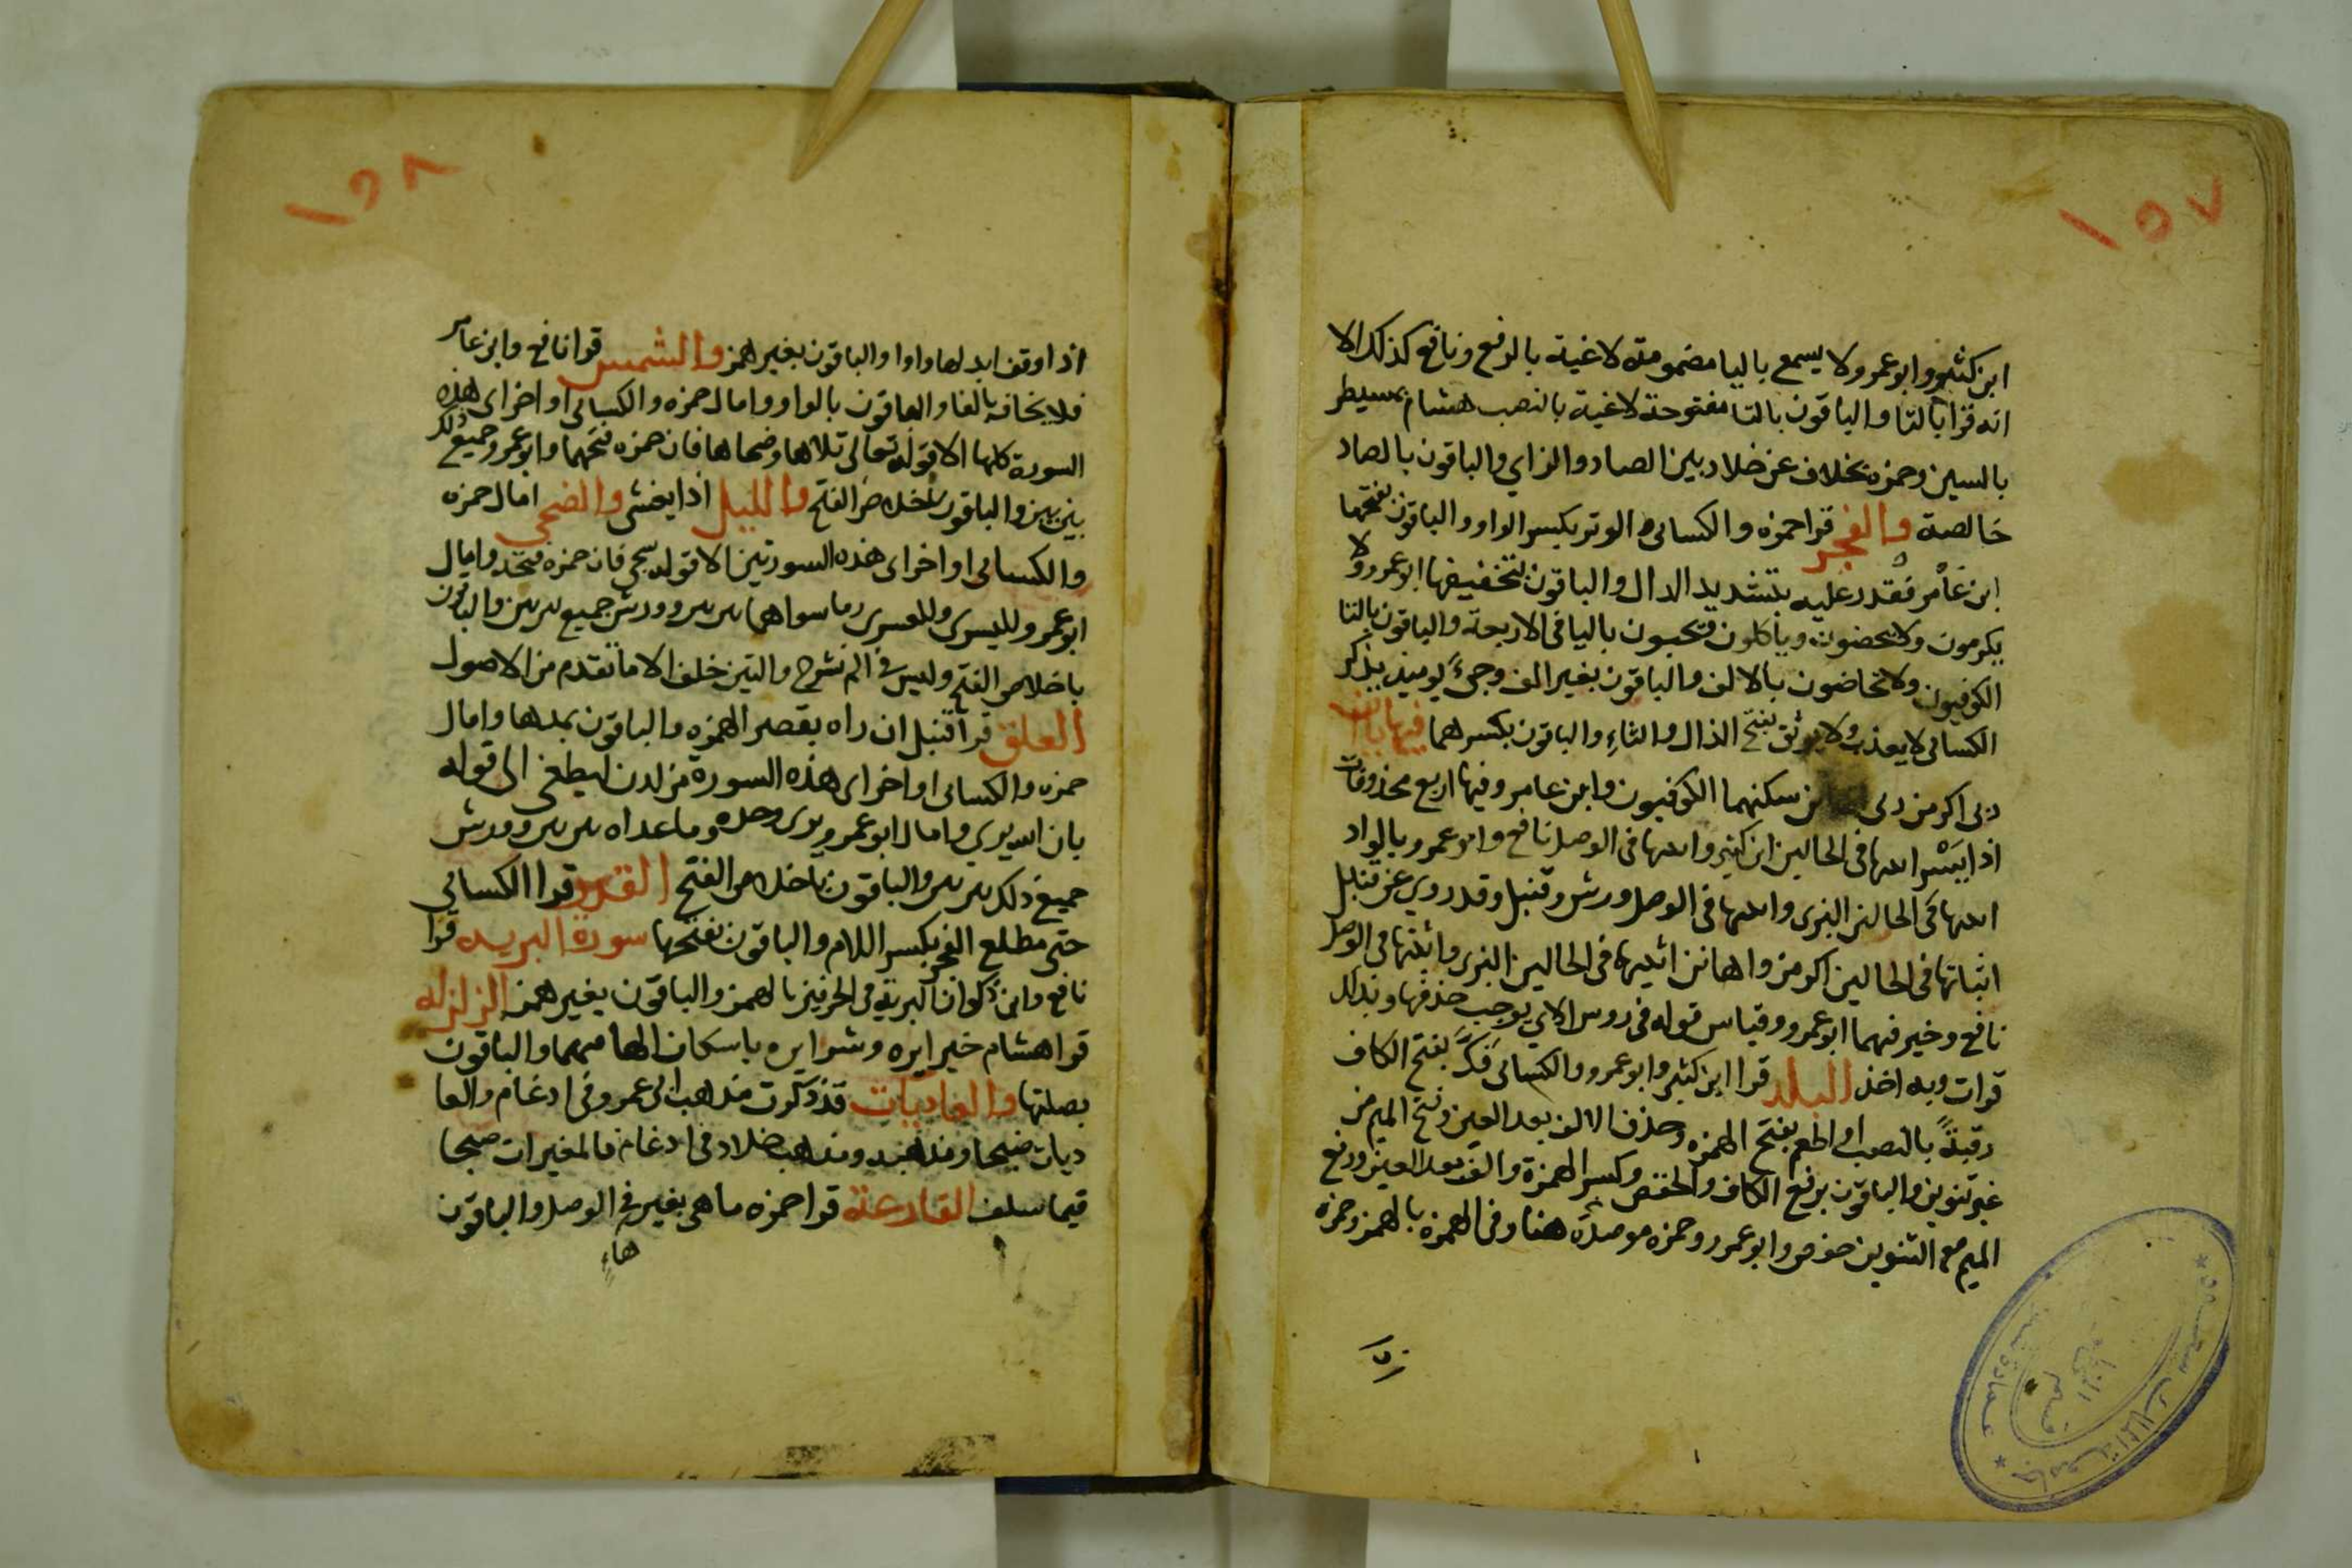 ١٥٧
ابن كثير وابو عمرو ولا يسمع باليا مضمومة لاغية بالرفع ونافع كذلك الا
انه قرا بالتا والباقون بالتا مفتوحة لاغية بالنصب هشام بمسيطر
بالسين وحمزه بخلاف عن خلاد بين الصاد والزاي والباقون بالصاد
خالصة والفجر قرا حمزه والكسائى والوتر بكسر الواو والباقون بفتحها
ابن عامر فقدر عليه بتشديد الدال والباقون بتخفيفها ابو عمرو ولا
يكرمون ولا يحضون وياكلون ويحبون باليا فى الاربعة والباقون بالتا
الكوفيون ولا تحاضون بالالف والباقون بغير الف وجىء يوميذ يذكر
الكسائى لا يعذب ولا يوثق بفتح الذال والثاء والباقون بكسرهما فيها يااان
ربى اكرمن ربى سكنهما الكوفيون وابن عامر وفيها اربع محذوفات
اذا يسر اثبتها فى الحالين ابن كثير واثبتها فى الوصل نافع وابو عمرو بالواد
اثبتها فى الحالين البزى واثبتها فى الوصل ورش وقنبل وقد روي عن قنبل
اثباتها فى الحالين اكرمن واهانن اثبتهما فى الحالين البزى واثبتهما فى الوصل
نافع وخير فيهما ابو عمرو وقياس قوله فى روس الاي يوجب حذفها وبذلك
قرات وبه اخذ البلد قرا ابن كثير وابو عمرو والكسائى فك بفتح الكاف
رقبة بالنصب او اطعم بفتح الهمزه وحذف الالف بعد العين وفتح الميم من
غير تنوين والباقون برفع الكاف والخفض وكسر الهمزة والف بعد العين ورفع
الميم مع التنوين حفص وابو عمرو وحمزه موصدة هنا وفى الهمزه بالهمز وحمزه
١٥٨
اذا وقف ابدلها واوا والباقون بغير همز والشمس قرا نافع وابن عامر
فلا يخاف بالفا والباقون بالواو وامال حمزه والكسائى اواخر اى هذه
السورة كلها الا قوله تعالى تلاها وضحاها فان حمزه فتحهما وابو عمرو جميع ذلك
بين بين والباقون باخلاص الفتح والليل اذا يغشى والضحى امال حمزه
والكسائى اواخر اى هذه السورتين الا قوله سجى فان حمزه فتحه وامال
ابو عمرو لليسرى وللعسرى وما سواهما بين بين وورش جميع بين بين والباقون
باخلاص الفتح وليس فى الم نشرح والتين خلف الا ما تقدم من الاصول
العلق قرا قنبل ان راه بقصر الهمزه والباقون بمدها وامال
حمزه والكسائى اواخر اى هذه السورة من لدن ليطغى الى قوله
بان الله يرى وامال ابو عمرو يرى وحده وما عداه بين بين وورش
جميع ذلك بين بين والباقون باخلاص الفتح القدر قرا الكسائي
حتى مطلع الفجر بكسر اللام والباقون بفتحها سورة البريه قرا
نافع وابن ذكوان البريئة فى الحرفين بالهمز والباقون بغير همز الزلزله
قرا هشام خيرا يره وشرا يره باسكان الها فيهما والباقون
بصلتها والعاديات قد ذكرت مذهب ابى عمرو فى ادغام والعا
ديات ضبحا ومذهبه ومذهب خلاد فى ادغام فالمغيرات صبحا
فيما سلف القارعة قرا حمزه ما هى بغير فى الوصل والباقون
هاءٍ